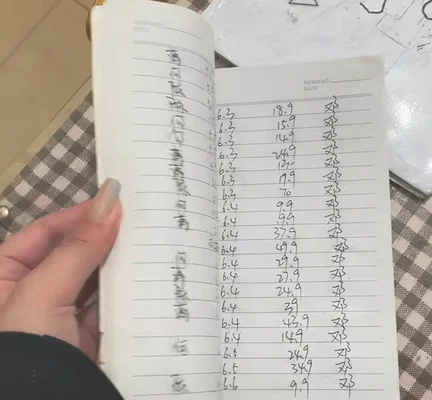 MEMO NO.
DATE
6.3 18.9 邓
6.3 15.9 邓
6.3 14.9 邓
6.3 24.9 邓
6.3 邓
6.3 17.9 邓
6.3 70 邓
6.4 9.9 邓
6.4 9.9 邓
6.4 37.9 邓
6.4 49.9 邓
6.4 29.9 邓
6.4 27.9 邓
6.4 24.9 邓
6.4 39 邓
6.4 43.9 邓
6.4 14.9 邓
6.5 24.9 邓
6.5 34.9 邓
6.6 9.9 邓